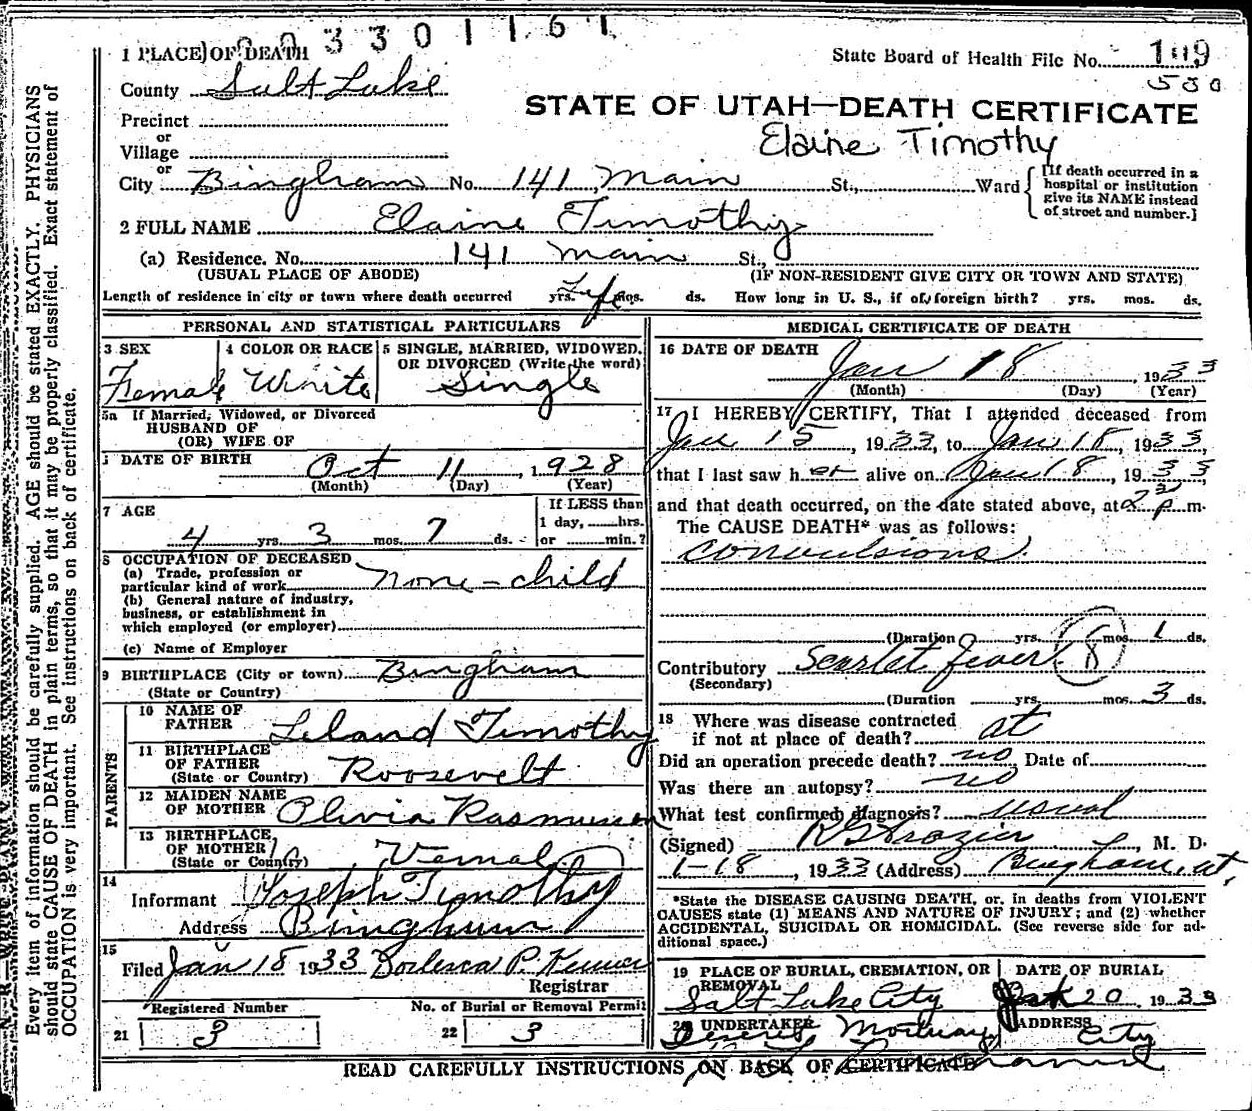 1 PLACE OF DEATH
State Board of Health File No. 109
500
County Salt Lake
STATE OF UTAH—DEATH CERTIFICATE
Precinct
or
Village
Elaine Timothy
or
City Bingham No. 141, Main St., Ward
[If death occurred in a hospital or institution give its NAME instead of street and number.]
2 FULL NAME Elaine Timothy
(a) Residence. No. 141 Main St.,
(USUAL PLACE OF ABODE) (IF NON-RESIDENT GIVE CITY OR TOWN AND STATE)
Length of residence in city or town where death occurred yrs. Life mos. ds. How long in U. S., if of foreign birth? yrs. mos. ds.
PERSONAL AND STATISTICAL PARTICULARS
3 SEX 4 COLOR OR RACE 5 SINGLE, MARRIED, WIDOWED,
OR DIVORCED (Write the word)
Female White Single
5a If Married, Widowed, or Divorced
HUSBAND OF
(OR) WIFE OF
DATE OF BIRTH Oct 11, 1928
(Month) (Day) (Year)
7 AGE If LESS than
1 day, hrs.
4 yrs. 3 mos. 7 ds. or min.?
8 OCCUPATION OF DECEASED
(a) Trade, profession or
particular kind of work none - child
(b) General nature of industry,
business, or establishment in
which employed (or employer)
(c) Name of Employer
9 BIRTHPLACE (City or town) Bingham
(State or Country)
PARENTS
10 NAME OF
FATHER Leland Timothy
11 BIRTHPLACE
OF FATHER
(State or Country) Roosevelt
12 MAIDEN NAME
OF MOTHER Olivia Rasmussen
13 BIRTHPLACE
OF MOTHER
(State or Country) Vernal
14
Informant Joseph Timothy
Address Bingham
15
Filed Jan 18 1933
Registrar
Registered Number No. of Burial or Removal Permit
21 3 22 3
MEDICAL CERTIFICATE OF DEATH
16 DATE OF DEATH
Jan 18, 1933
(Month) (Day) (Year)
17 I HEREBY CERTIFY, That I attended deceased from
Jan 15, 1933, to Jan 18, 1933,
that I last saw her alive on Jan 18, 1933,
and that death occurred, on the date stated above, at 2 p m.
The CAUSE DEATH* was as follows:
convulsions
(Duration yrs. mos. 1 ds.
Contributory Scarlet fever 8
(Secondary)
(Duration yrs. mos. 3 ds.
18 Where was disease contracted
if not at place of death? at
Did an operation precede death? no Date of
Was there an autopsy? no
What test confirmed diagnosis? usual
(Signed) , M. D.
1-18, 1933 (Address) Bingham, ut,
*State the DISEASE CAUSING DEATH, or, in deaths from VIOLENT
CAUSES state (1) MEANS AND NATURE OF INJURY; and (2) whether
ACCIDENTAL, SUICIDAL OR HOMICIDAL. (See reverse side for ad-
ditional space.)
19 PLACE OF BURIAL, CREMATION, OR REMOVAL DATE OF BURIAL
Salt Lake City 20, 1933
20 UNDERTAKER ADDRESS
Deseret Mortuary City
READ CAREFULLY INSTRUCTIONS ON BACK OF CERTIFICATE
Every item of information should be carefully supplied. AGE should be stated EXACTLY. PHYSICIANS
should state CAUSE OF DEATH in plain terms, so that it may be properly classified. Exact statement of
OCCUPATION is very important. See instructions on back of certificate.